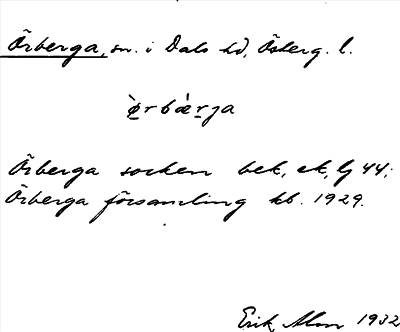 Örberga, sn. i Dals hd, Österg. l.
œ̀rbæ̀rga
Örberga socken bek, ek, Lj 44;
Örberga församling kb. 1929.
Erik 1932